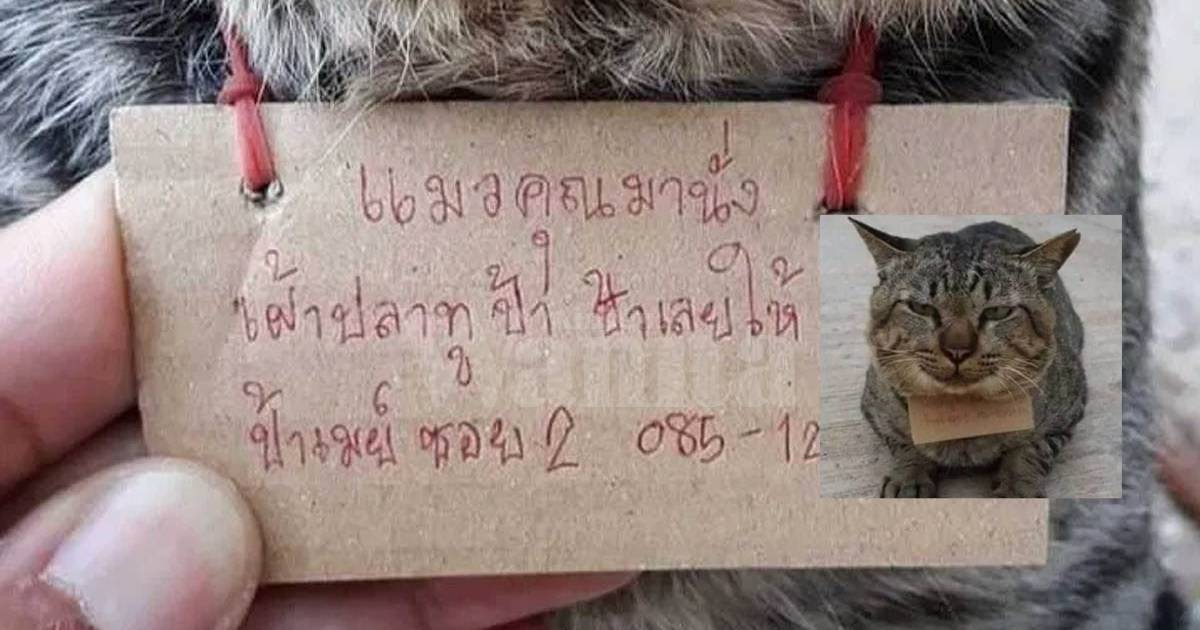 แมวคุณมานั่ง
เฝ้าปลาทูป้า ป้าเลยให้
ป้าเมย์ ซอย 2 085-12